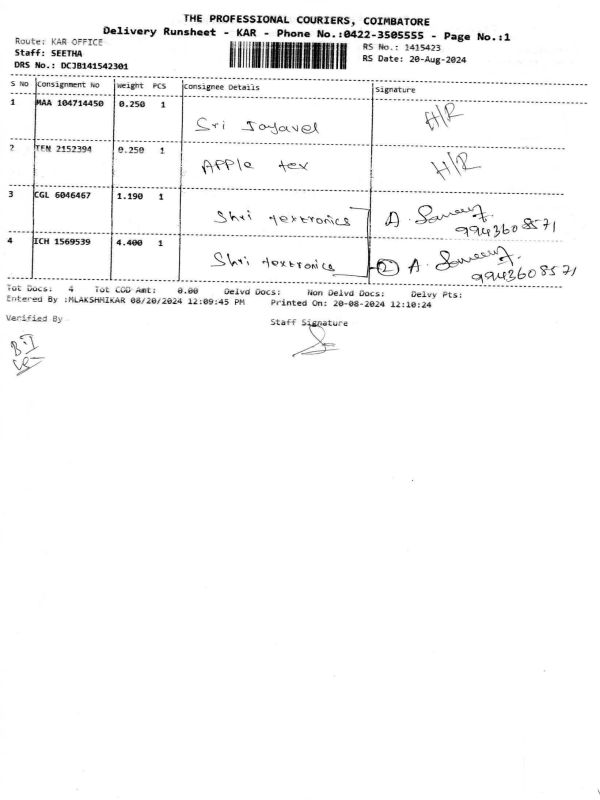 THE PROFESSIONAL COURIERS, COIMBATORE
Delivery Runsheet - KAR - Phone No.:0422-3505555 - Page No.:1
Route: KAR OFFICE
Staff: SEETHA
DRS No.: DCJB141542301
RS No.: 1415423
RS Date: 20-Aug-2024
S No Consignment No Weight PCS Consignee Details Signature
1 MAA 104714450 0.250 1
Sri Jayavel H/R
2 TEN 2152394 0.250 1
APPle tex H/R
3 CGL 6046467 1.190 1
Shri textronics A.
9943608571
4 ICH 1569539 4.400 1
Shri textronics 2 A.
9943608571
Tot Docs: 4 Tot COD Amt: 0.00 Delvd Docs: Non Delvd Docs: Delvy Pts:
Entered By :MLAKSHMIKAR 08/20/2024 12:09:45 PM Printed On: 20-08-2024 12:10:24
Verified By
Staff Signature